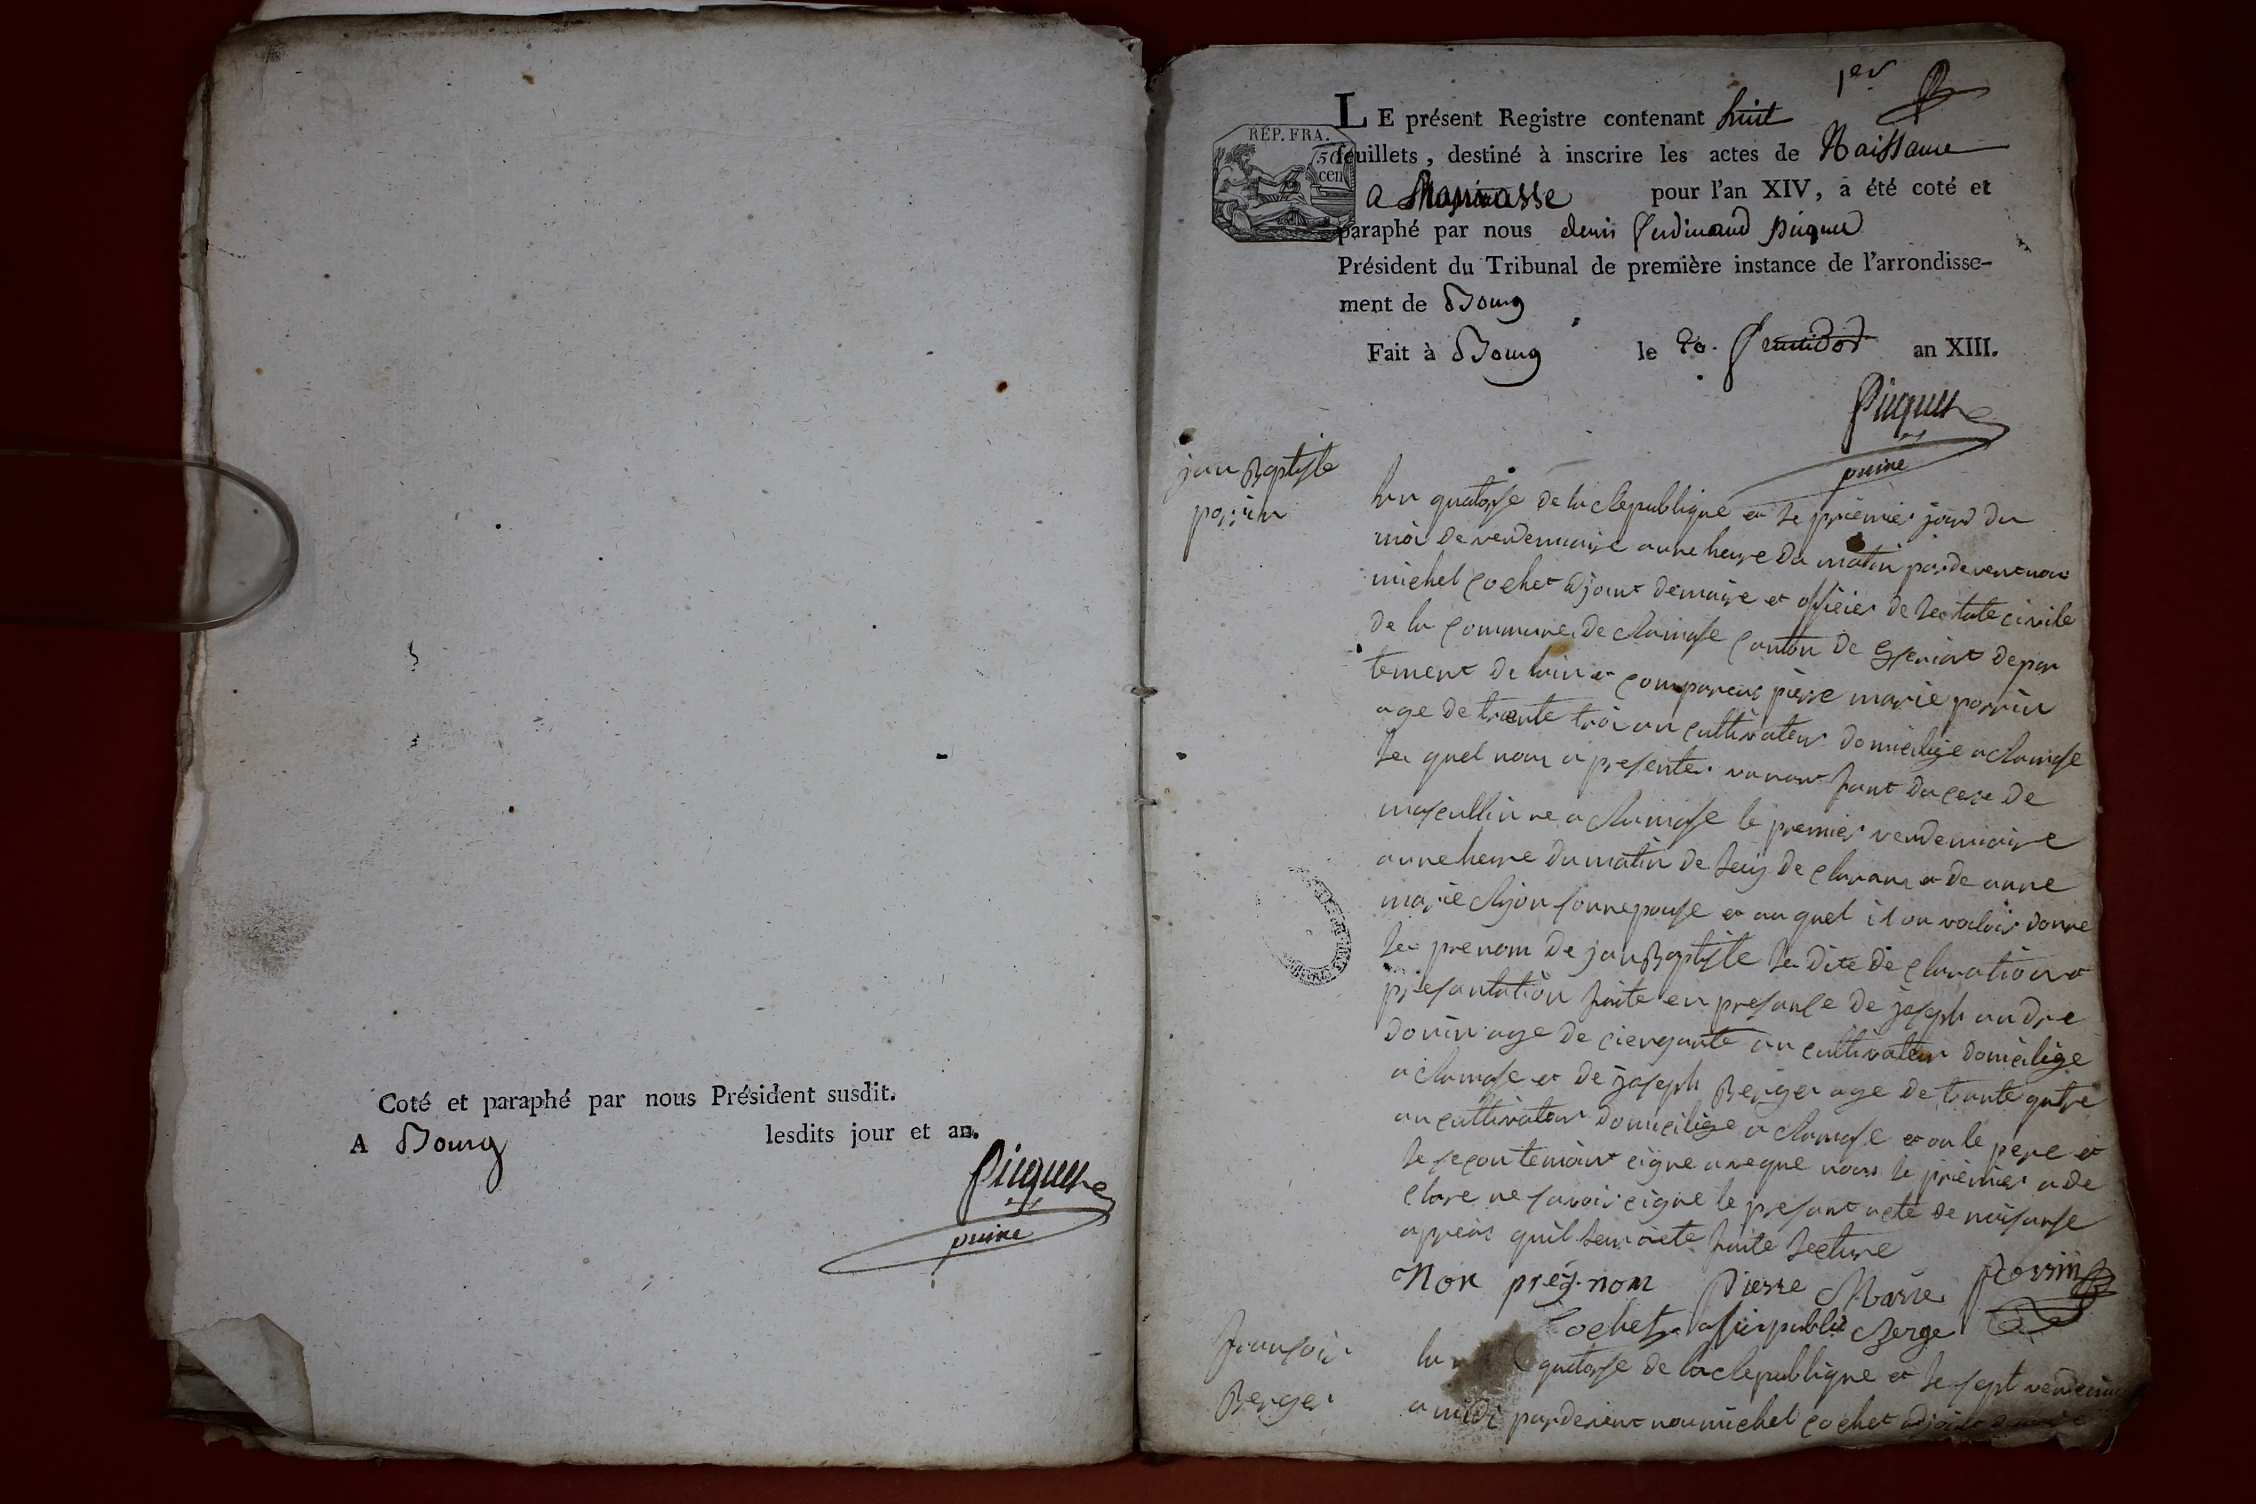 Coté et paraphé par nous Président susdit.
A Bourg lesdits jour et an.
Picquet
puiné
1er
LE présent Registre contenant huit
feuillets, destiné à inscrire les actes de Naissance
a Ramasse pour l'an XIV, a été coté et
paraphé par nous denis ferdinand picquet
Président du Tribunal de première instance de l'arrondisse-
ment de Bourg
Fait à Bourg le 20. fructidor an XIII.
RÉP. FRA.
50
cen
Picquet
puiné
jan Baptiste
porrin
lan quatorse de la Republique et le premier jour du
moi de vendemiaire a une heure du matin pardevent nous
michel cochet adjoint demaire et officier de lestate civile
de la commune de Ramase canton de Ceseriat depar
tement de lain et comparent pierre marie porrin
age de trante troi an cultivateur domicilige a Ramase
le quel nous a presenter un nant fant du cexe de
mascullin ne a Ramase le premier vendemiaire
a une heure du matin de luy de clarant et de anne
marie Rijon sonnepouse et au quel il on voulois donne
le prenom de jan Baptiste la dite de claration et
presantation faite en presanse de joseph andre
donin age de ciencante an cultivateur domicilige
a Ramase et de joseph Berger age de trante qatre
an cultivateur domicilige a Ramase et on le pere et
le secon temoint cigne aveque nous le premier a de
clare ne savoir cigne le presant acte de naisanse
appreis quil leur aete faite lecture
Non prés. nom pierre Marie porrin
Cochet ofisier publie Berger
fransois
Berger
la quatorse de la Republique et le sept vendemia
a midi pardevent nou michel cochet adjoint demaire